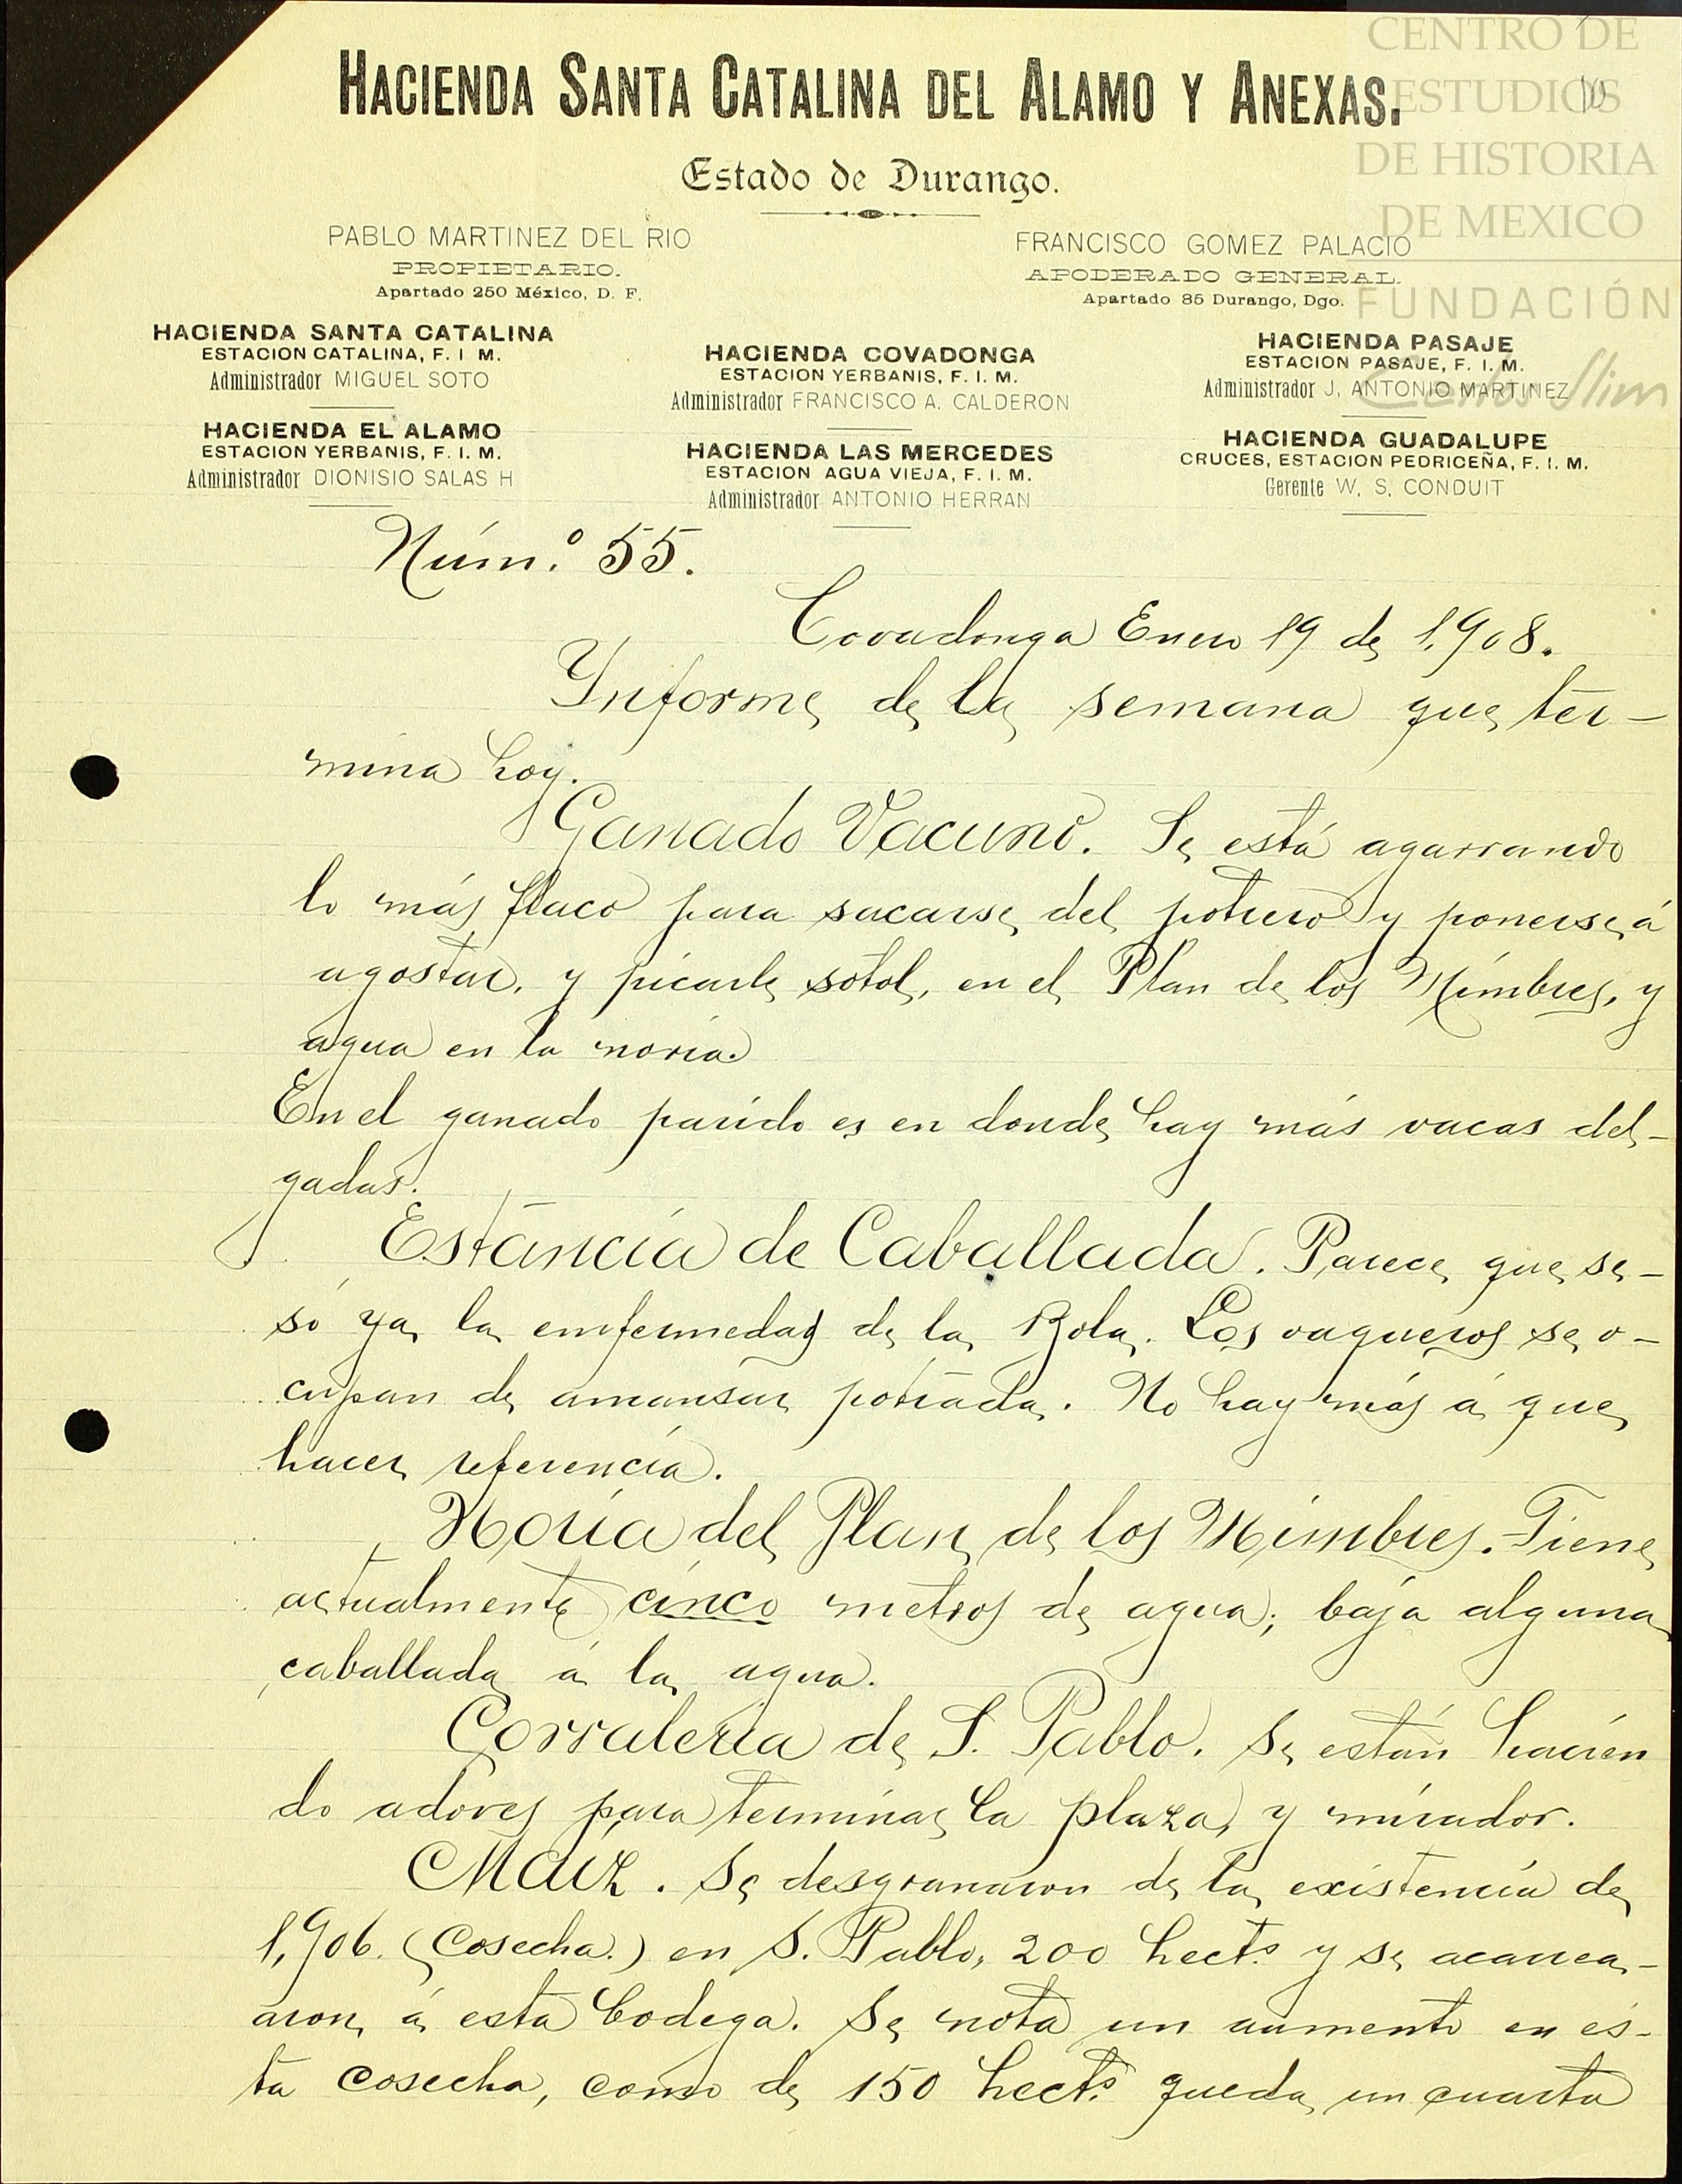 CENTRO DE
ESTUDIOS
DE HISTORIA
DE MEXICO
FUNDACIÓN
Carlos Slim
HACIENDA SANTA CATALINA DEL ALAMO Y ANEXAS.
Estado de Durango.
PABLO MARTINEZ DEL RIO
PROPIETARIO.
Apartado 250 México, D. F.
FRANCISCO GOMEZ PALACIO
APODERADO GENERAL.
Apartado 85 Durango, Dgo.
HACIENDA SANTA CATALINA
ESTACION CATALINA, F. I M.
Administrador MIGUEL SOTO
HACIENDA EL ALAMO
ESTACION YERBANIS, F. I. M.
Administrador DIONISIO SALAS H
HACIENDA COVADONGA
ESTACION YERBANIS, F. I. M.
Administrador FRANCISCO A. CALDERON
HACIENDA LAS MERCEDES
ESTACION AGUA VIEJA, F. I. M.
Administrador ANTONIO HERRAN
HACIENDA PASAJE
ESTACION PASAJE, F. I. M.
Administrador J. ANTONIO MARTINEZ
HACIENDA GUADALUPE
CRUCES, ESTACION PEDRICEÑA, F. I. M.
Gerente W. S. CONDUIT
Núm.º 55.
Covadonga Enero 19 de 1,908.
Ynforme de la semana que ter-
mina hoy.
Ganado Vacuno. Se está agarrando
lo más flaco para sacarse del potrero y ponerse á
agostar, y picarle sotol, en el Plan de los Mimbres, y
agua en la noria.
En el ganado parido es en donde hay más vacas del-
gadas.
Estáncia de Caballada. Parece que se-
só ya la enfermedad de la Bola. Los vaqueros se o-
cupan de amansar potrada. No hay más á que
hacer referencia.
Noria del Plan de los Mimbres. Tiene
actualmente cinco metros de agua; baja alguna
caballada á la agua.
Corraleria de S. Pablo. Se están hacien
do adoves para terminar la plaza, y mirador.
Maiz. Se desgranaron de la existencia de
1,906. (Cosecha.) en S. Pablo, 200 hects. y se acarrea-
aron á esta bodega. Se nota un aumento en és-
ta cosecha, como de 150 hects. queda un cuarto